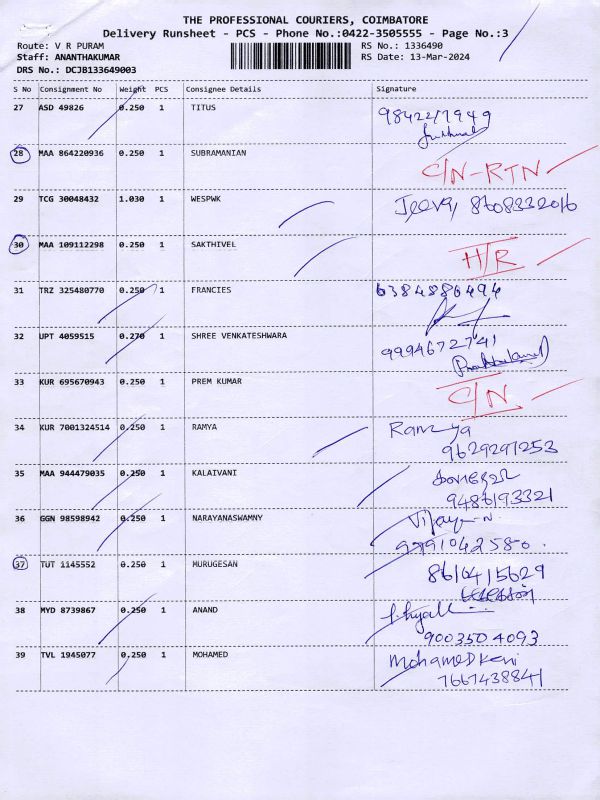 THE PROFESSIONAL COURIERS, COIMBATORE
Delivery Runsheet - PCS - Phone No.:0422-3505555 - Page No.:3
Route: V R PURAM
RS No.: 1336490
Staff: ANANTHAKUMAR
RS Date: 13-Mar-2024
DRS No.: DCJB133649003
S No Consignment No Weight PCS Consignee Details Signature
27 ASD 49826 0.250 1 TITUS
9842217949
28 MAA 864220936 0.250 1 SUBRAMANIAN
C/N-RTN
29 TCG 30048432 1.030 1 WESPWK Jeeva, 8608332016
30 MAA 109112298 0.250 1 SAKTHIVEL
H/R
31 TRZ 325480770 0.250 1 FRANCIES 6384886494
32 UPT 4059515 0.270 1 SHREE VENKATESHWARA
9994672741
33 KUR 695670943 0.250 1 PREM KUMAR
C/N
34 KUR 7001324514 0.250 1 RAMYA Ramya
9629297253
35 MAA 944479035 0.250 1 KALAIVANI
9486193321
36 GGN 98598942 0.250 1 NARAYANASWAMNY Vijaya-N
9791042580
37 TUT 1145552 0.250 1 MURUGESAN
8610415629
38 MYD 8739867 0.250 1 ANAND
9003504093
39 TVL 1945077 0.250 1 MOHAMED Mohamed Kani
7667438841